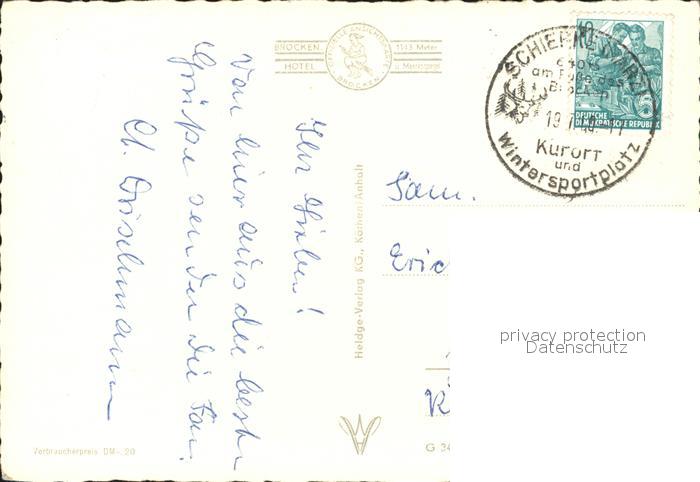 BROCKEN
HOTEL
OFFIZIELLE ANSICHTSKARTE
BROCKEN
1143 Meter
ü. Meeresspiegel
10
DEUTSCHE
DEMOKRATISCHE REPUBLIK
SCHIERKE (HARZ)
am Fuße des
Brockens
19
Kurort
und
Wintersportplatz
Ihr Lieben!
Von hier aus die besten
Grüße sendet die Fam.
Fam.
Eric
K
Heldge-Verlag KG., Köthen/Anhalt
G 34
Verbraucherpreis DM -.20
privacy protection
Datenschutz